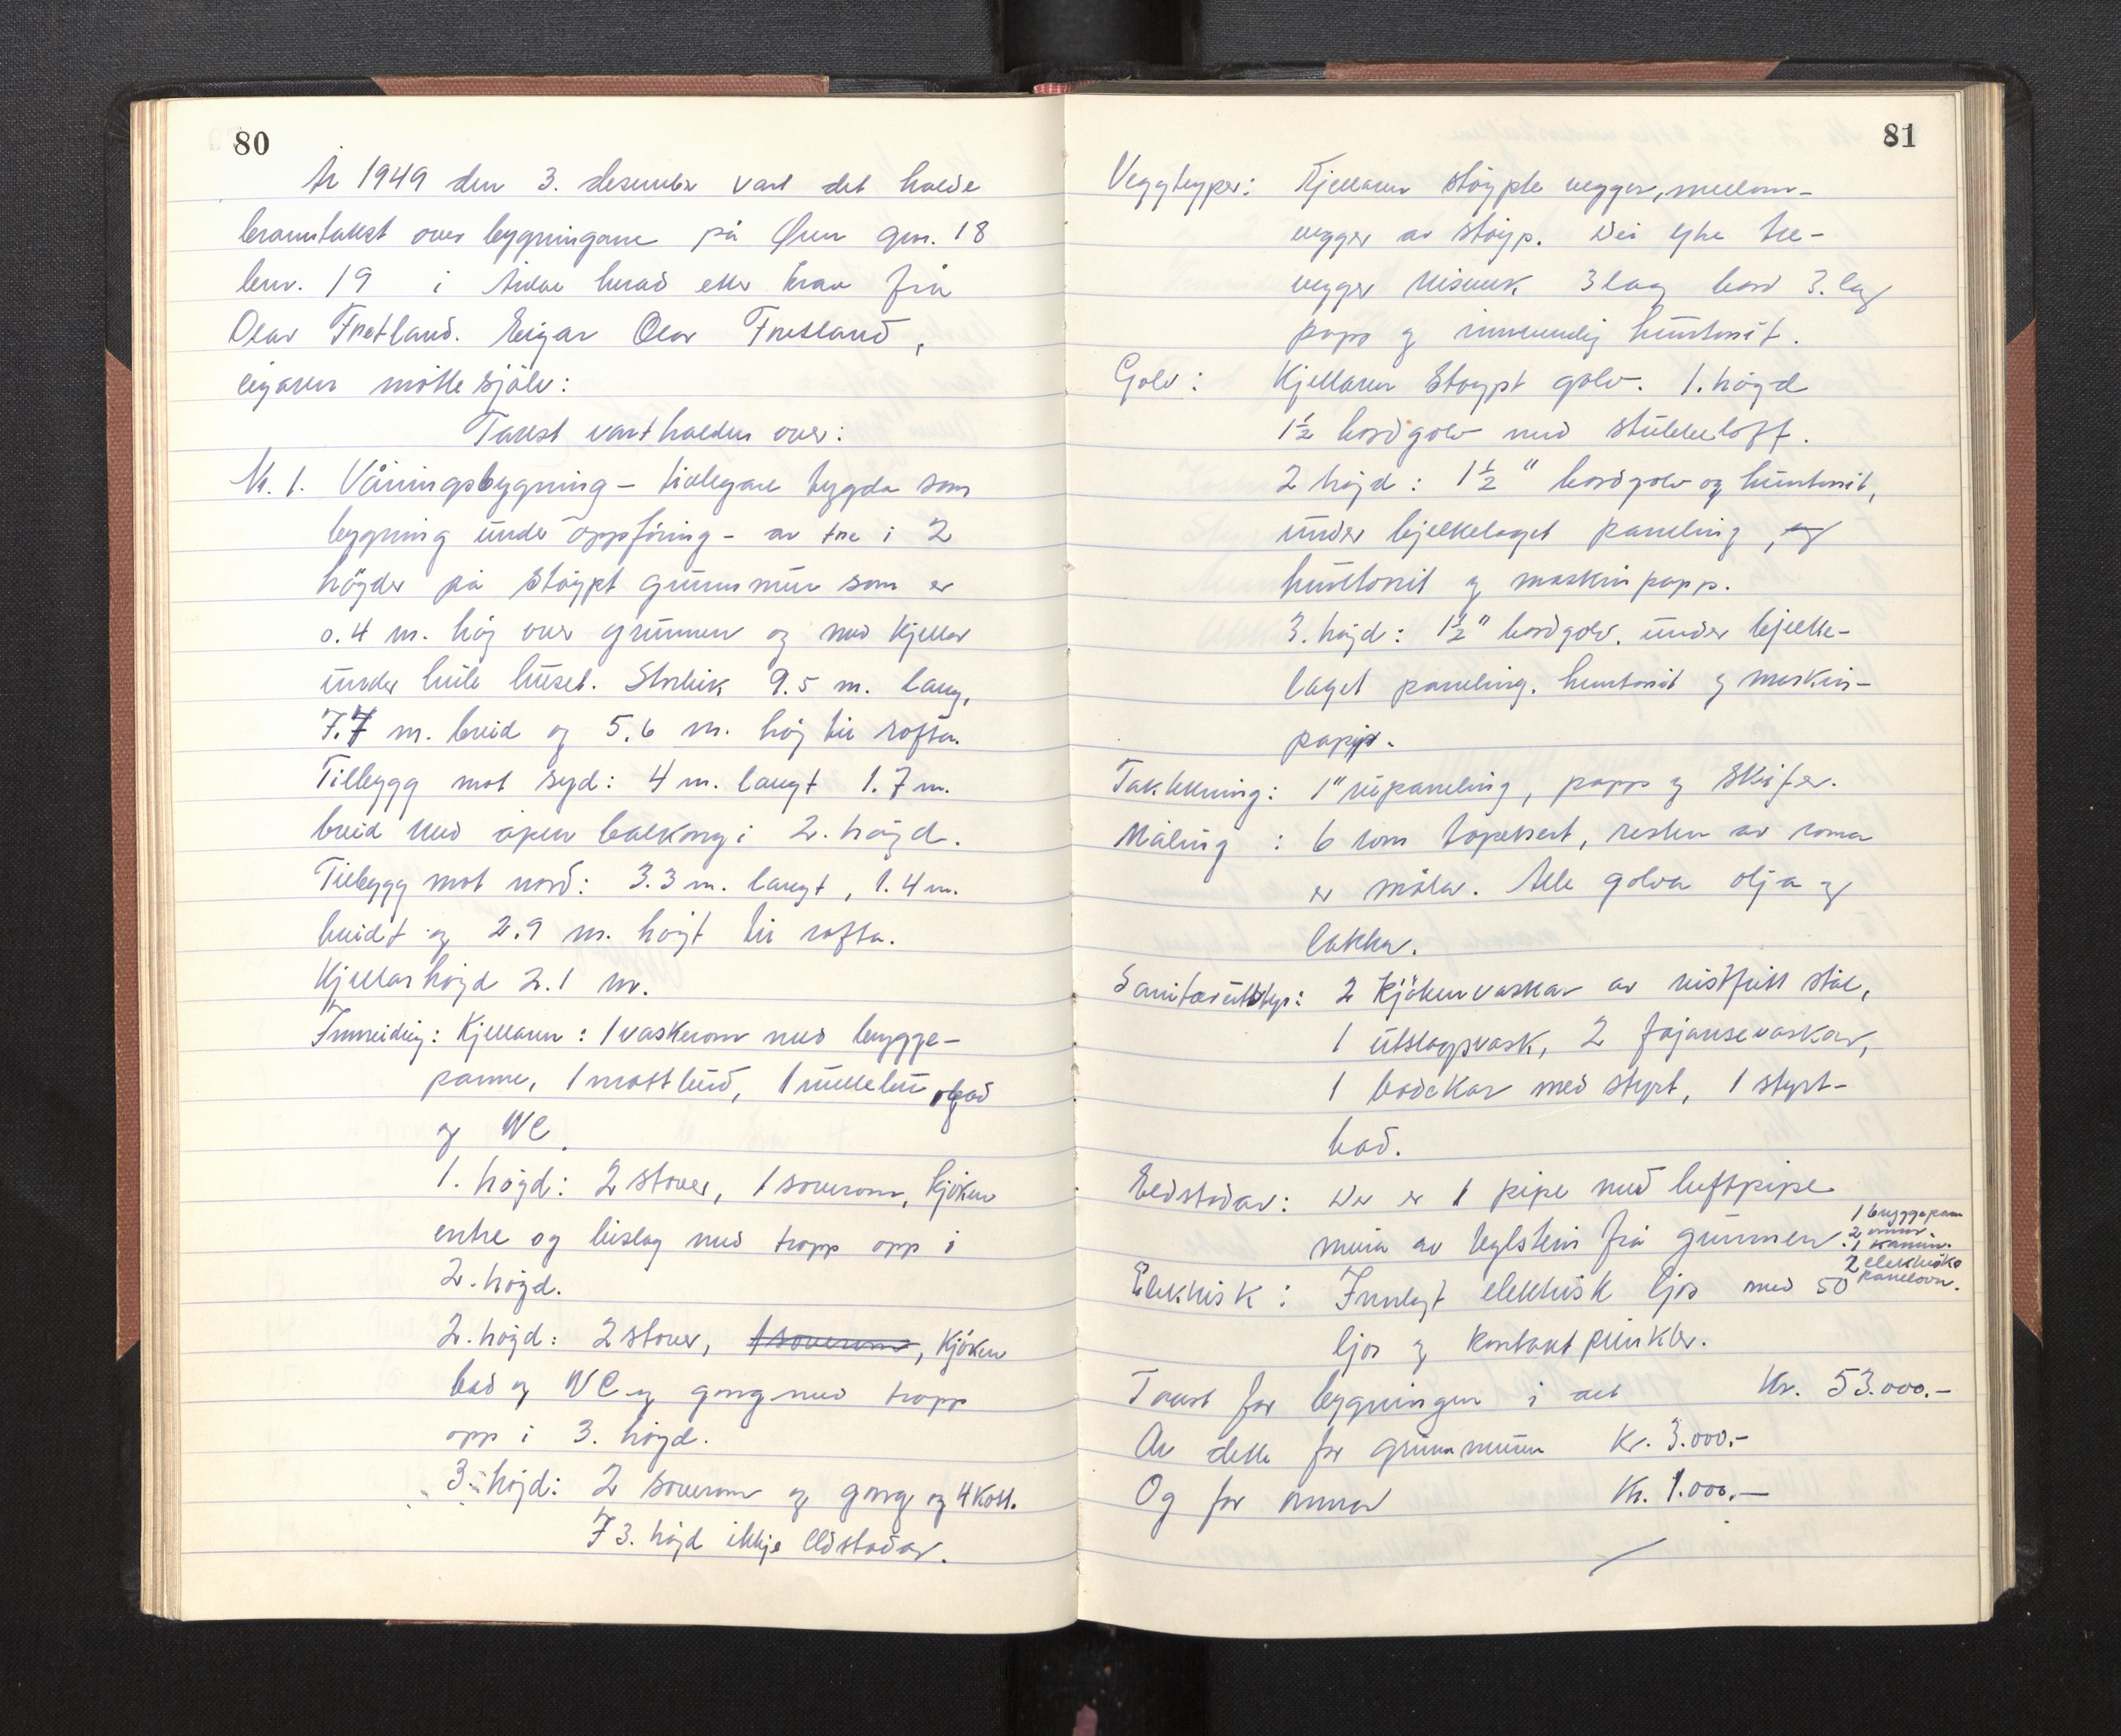 80
År 1949 den 3. desember vart det halde
branntakst over bygningane på Øren gnr. 18
bnr. 19 i Askvoll herad etter krav frå
Olav Fretland. Eigar Olav Fretland,
eigaren møtte sjølv:
Takst vart halden over:
Nr. 1. Våningsbygning – tidlegare bygda som
bygning under oppföring – av tre i 2
högder på stöypt grunnmur som er
0.4 m. höy over grunnen og med kjellar
under heile huset. Storleik 9.5 m. lang,
7.7 m. breid og 5.6 m. høg til rofta.
Tilbygg mot syd: 4 m. langt 1.7 m.
breid med open balkong i 2. högd.
Tilbygg mot nord: 3.3 m. langt, 1.4 m.
breidt og 2.9 m. högt til rofta.
Kjellarhögd 2.1 m.
Innreiing: Kjellaren: 1 vaskerom med brygge-
panne, 1 matbud, 1 rullebu, bad
og WC.
1. högd: 2 stover, 1 soverom, kjöken
entre og bislag med tropp opp i
2. högd.
2. högd: 2 stover, 1 soverom, kjöken
bad og WC og gong med tropp
opp i 3. högd.
3. högd: 2 soverom og gong og 4 kott.
I 3. högd ikkje eldstadar.
81
Veggtyper: Kjellaren stöypte vegger, mellom-
vegger av stöyp. Dei ytre tre-
vegger reisverk 3 lag bord 3. lag
papp og innvendig huntonit.
Golv: Kjellaren stöypt golv. 1. högd
1½ bordgolv med stubbeloft.
2 högd: 1½" bordgolv og huntonit,
under bjelkelaget paneling, og
huntonit og maskinpapp.
3. högd: 1½" bordgolv. under bjelke-
laget paneling. huntonit og maskin-
papp.
Taktekning: 1" rupaneling, papp og skifer.
Måling : 6 rom tapetsert, resten av roma
er måla. Alle golva olja og
lakka.
Sanitærutstyr: 2 kjökenvaskar av rustfritt stål,
1 utslagsvask, 2 fajansevaskar,
1 badekar med styrt, 1 styrt-
bad.
Eldstadar: Der er 1 pipe med luftpipe
mura av teglstein frå grunnen. 1 bryggepann
2 omnar.
1 kamin.
2 elektriske
panelovn.
Elektrisk: Innlagt elektrisk ljos med 50
ljos og kontakt punkter.
Takst for bygningen i alt Kr. 53.000.–
Av dette for grunnmuren Kr. 3.000.–
Og for annar Kr. 1.000.–